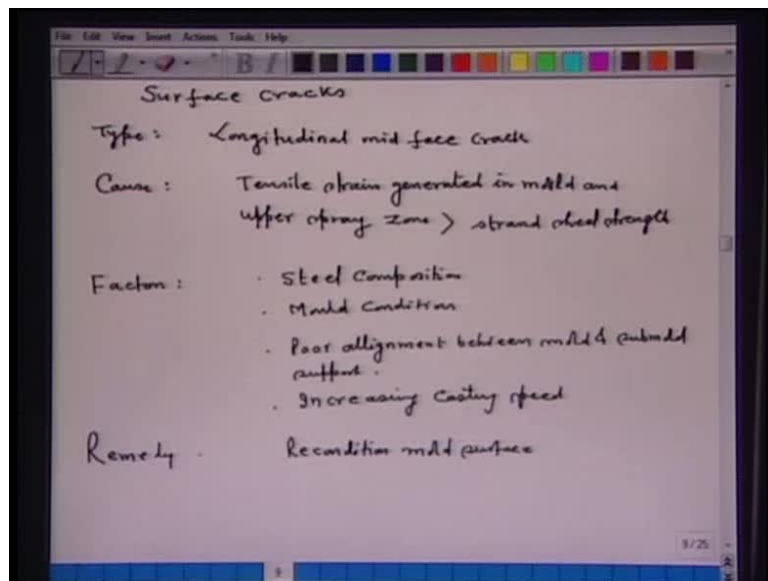 File Edit View Insert Actions Tools Help
Surface cracks
Type : Longitudinal mid face crack
Cause : Tensile strain generated in mold and
upper spray zone > strand steel strength
Factors : . Steel Composition
. Mould Condition
. Poor allignment between mold & submold
support .
. Increasing Casting speed
Remedy . Recondition mold surface
9/25
9